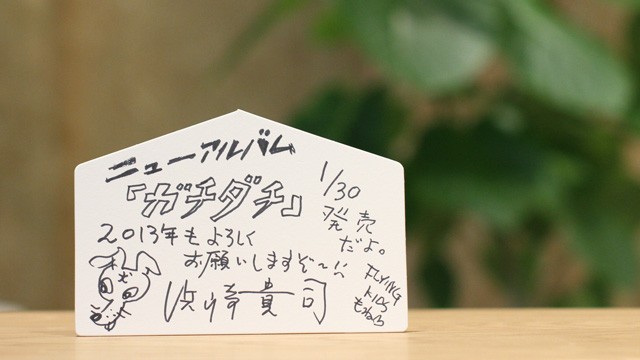 ニューアルバム
『ガチダチ』
1/30
発売
だよ。
2013年もよろしく
お願いしますぞ〜!!
浜崎貴司
FLYING
KIDS
もねら